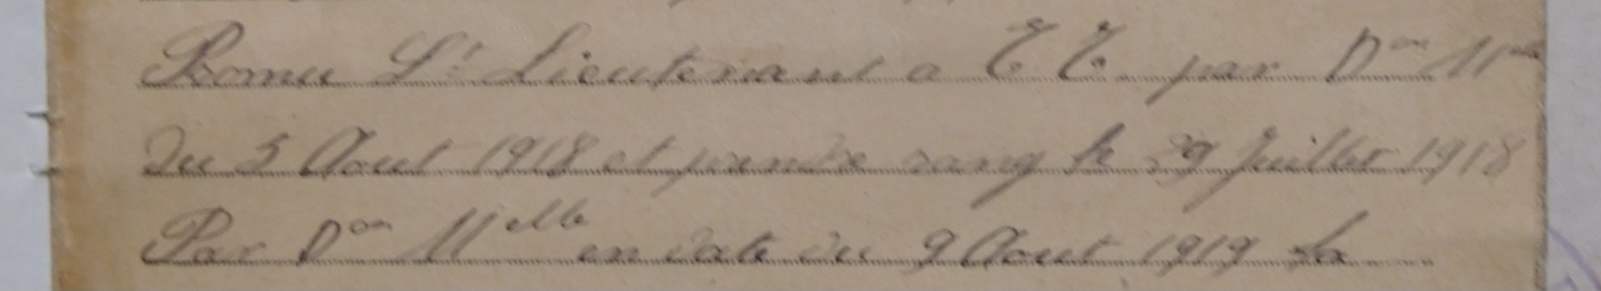 Promu St Lieutenant a T T. par Don Mlle
du 5 Aout 1918 et prendra rang le 29 Juillet 1918
Par Don Melle en date du 9 Aout 1919 la